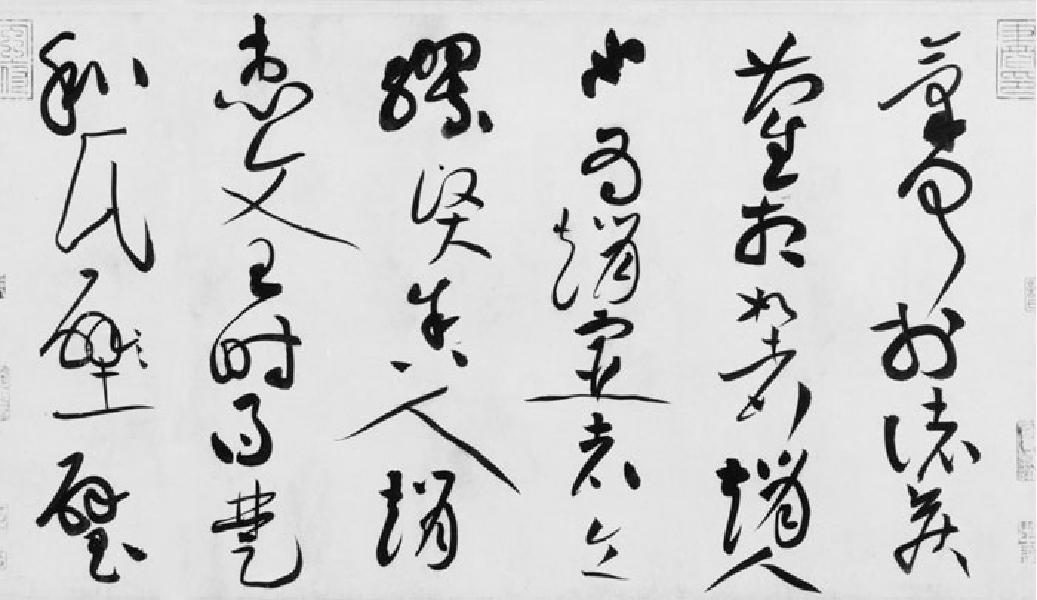 氣聞於諸侯
藺相如者趙人
也為趙宦者令
繆賢舍人趙
惠文王時得楚
和氏壁璧